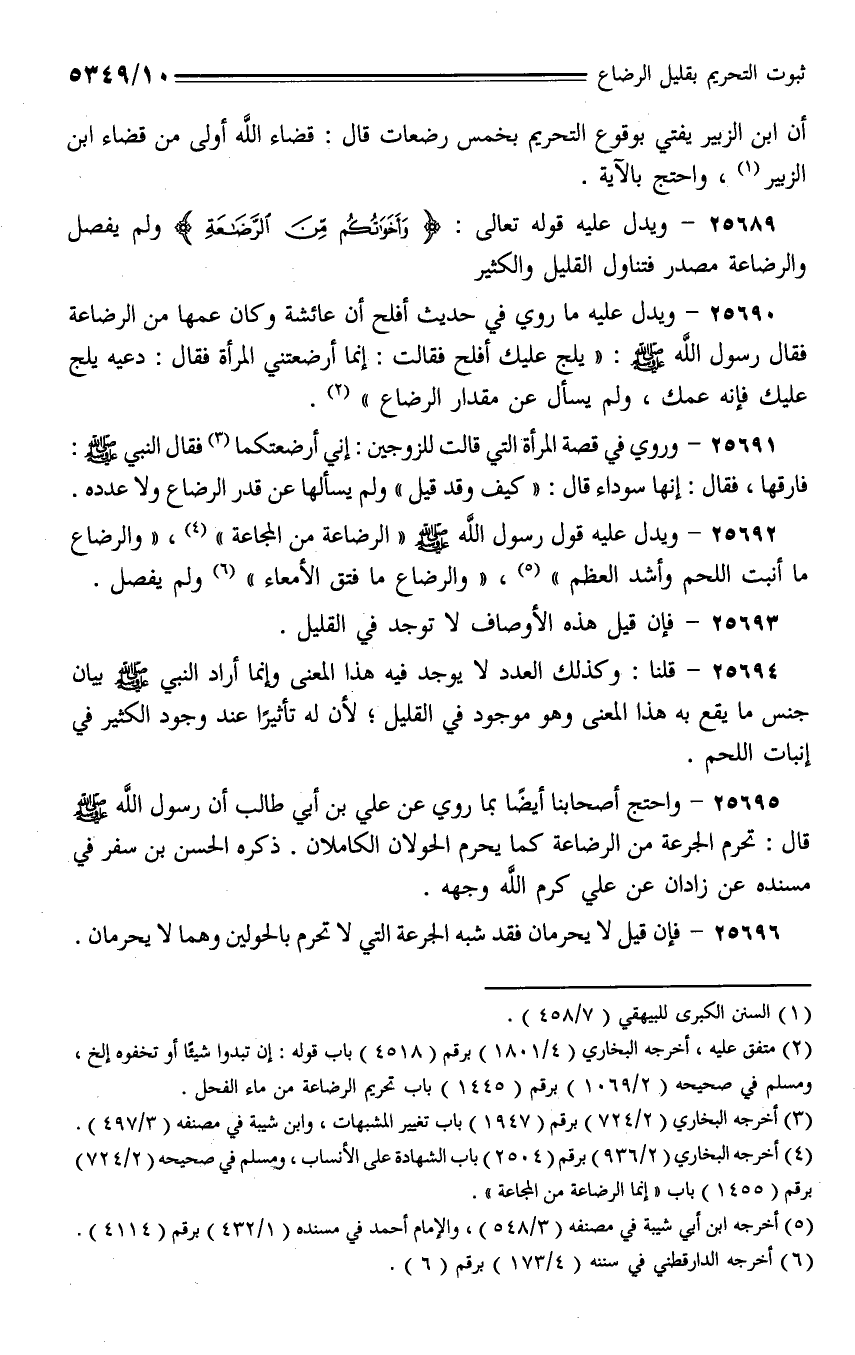 ثبوت التحريم بقليل الرضاع ٥٣٤٩/١٠
أن ابن الزبير يفتي بوقوع التحريم بخمس رضعات قال : قضاء اللَّه أولى من قضاء ابن
الزبير (١) ، واحتج بالآية .
٢٥٦٨٩ – ويدل عليه قوله تعالى : ﴿ وَأَخَوَٰتُكُم مِّنَ ٱلرَّضَٰعَةِ ﴾ ولم يفصل
والرضاعة مصدر فتناول القليل والكثير
٢٥٦٩٠ – ويدل عليه ما روي في حديث أفلح أن عائشة وكان عمها من الرضاعة
فقال رسول اللَّه ﷺ : « يلج عليك أفلح فقالت : إنما أرضعتني المرأة فقال : دعيه يلج
عليك فإنه عمك ، ولم يسأل عن مقدار الرضاع » (٢) .
٢٥٦٩١ – وروي في قصة المرأة التي قالت للزوجين : إني أرضعتكما (٣) فقال النبي ﷺ :
فارقها ، فقال : إنها سوداء قال : « كيف وقد قيل » ولم يسألها عن قدر الرضاع ولا عدده .
٢٥٦٩٢ – ويدل عليه قول رسول اللَّه ﷺ « الرضاعة من المجاعة » (٤) ، « والرضاع
ما أنبت اللحم وأشد العظم » (٥) ، « والرضاع ما فتق الأمعاء » (٦) ولم يفصل .
٢٥٦٩٣ – فإن قيل هذه الأوصاف لا توجد في القليل .
٢٥٦٩٤ – قلنا : وكذلك العدد لا يوجد فيه هذا المعنى وإنما أراد النبي ﷺ بيان
جنس ما يقع به هذا المعنى وهو موجود في القليل ؛ لأن له تأثيرًا عند وجود الكثير في
إنبات اللحم .
٢٥٦٩٥ – واحتج أصحابنا أيضًا بما روي عن علي بن أبي طالب أن رسول اللَّه ﷺ
قال : تحرم الجرعة من الرضاعة كما يحرم الحولان الكاملان . ذكره الحسن بن سفر في
مسنده عن زادان عن علي كرم اللَّه وجهه .
٢٥٦٩٦ – فإن قيل لا يحرمان فقد شبه الجرعة التي لا تحرم بالحولين وهما لا يحرمان .
(١) السنن الكبرى للبيهقي ( ٤٥٨/٧ ) .
(٢) متفق عليه ، أخرجه البخاري ( ١٨٠١/٤ ) برقم ( ٤٥١٨ ) باب قوله : إن تبدوا شيئًا أو تخفوه إلخ ،
ومسلم في صحيحه ( ١٠٦٩/٢ ) برقم ( ١٤٤٥ ) باب تحريم الرضاعة من ماء الفحل .
(٣) أخرجه البخاري ( ٧٢٤/٢ ) برقم ( ١٩٤٧ ) باب تغيير المشبهات ، وابن شيبة في مصنفه ( ٤٩٧/٣ ) .
(٤) أخرجه البخاري ( ٩٣٦/٢ ) برقم ( ٢٥٠٤ ) باب الشهادة على الأنساب ، ومسلم في صحيحه ( ٧٢٤/٢ )
برقم ( ١٤٥٥ ) باب « إنما الرضاعة من المجاعة » .
(٥) أخرجه ابن أبي شيبة في مصنفه ( ٥٤٨/٣ ) ، والإمام أحمد في مسنده ( ٤٣٢/١ ) برقم ( ٤١١٤ ) .
(٦) أخرجه الدارقطني في سننه ( ١٧٣/٤ ) برقم ( ٦ ) .